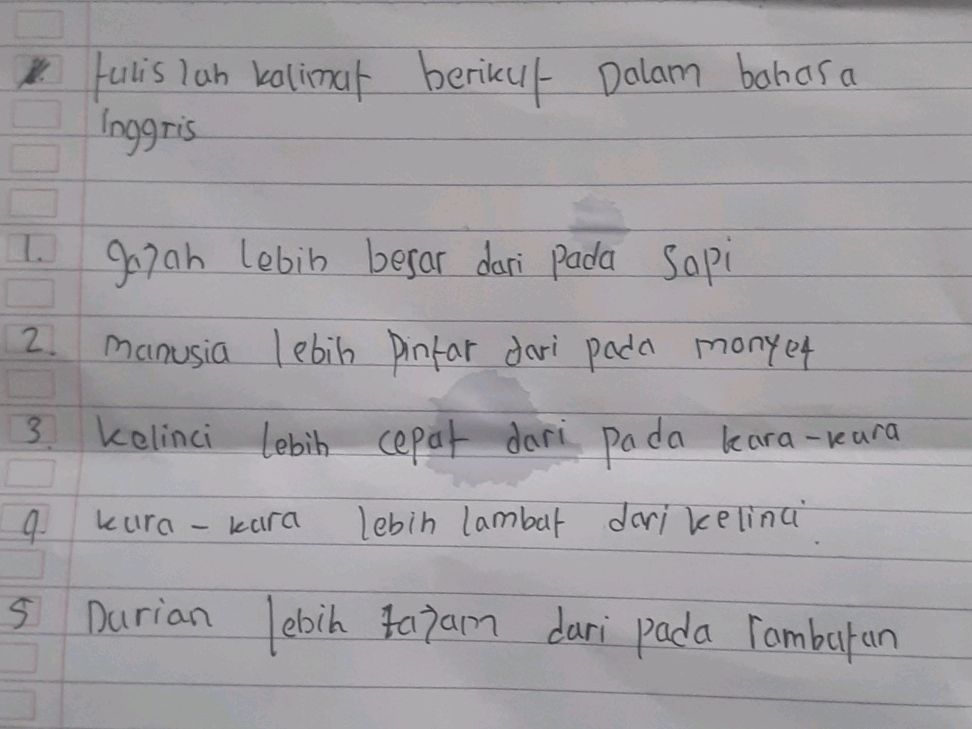 tulis lah kalimat berikut Dalam bahasa
inggris
1. gajah lebih besar dari pada sapi
2. manusia lebih pintar dari pada monyet
3. kelinci lebih cepat dari pada kura-kura
4. kura-kura lebih lambat dari kelinci.
5 Durian lebih tajam dari pada rambutan